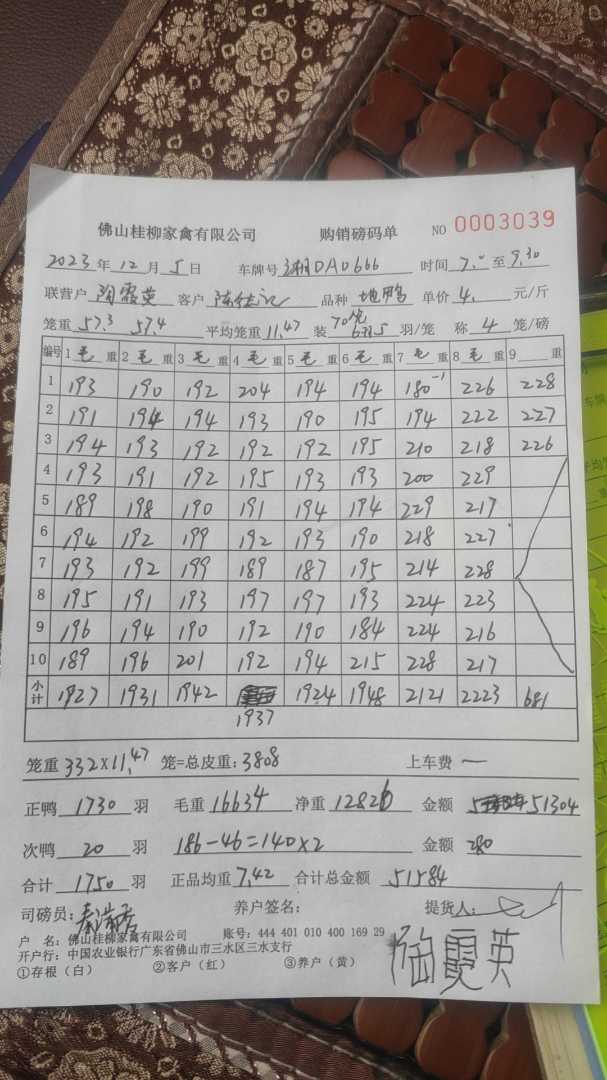 佛山桂柳家禽有限公司 购销磅码单 NO 0003039
2023年12月5日 车牌号 湘DAD666 时间 7.0至9.30
联营户 陶霞英 客户 品种 地鸭 单价 4. 元/斤
笼重 57.3 57.4 平均笼重 11.47 装 羽/笼 称 4 笼/磅
编号 1毛重 2毛重 3毛重 4毛重 5毛重 6毛重 7毛重 8毛重 9 重
1 193 190 192 204 194 194 180-1 226 228
2 191 194 194 193 190 195 194 222 227
3 194 193 192 192 192 195 210 218 226
4 193 191 192 195 193 193 200 229
5 189 198 190 191 194 194 229 217
6 194 192 199 192 193 190 218 227
7 193 192 199 189 187 195 214 228
8 195 191 193 197 197 193 224 223
9 196 194 190 192 190 184 224 216
10 189 196 201 192 194 215 228 217
小计 1927 1931 1942 1924 1948 2121 2223 681
1937
笼重 332×11.47 笼=总皮重:3808 上车费 一
正鸭 1730 羽 毛重 16634 净重 12826 金额 51304
次鸭 20 羽 186-46=140×2 金额 280
合计 1750 羽 正品均重 7.42 合计总金额 51584
司磅员: 养户签名: 提货人:
户 名:佛山桂柳家禽有限公司 账号:444 401 010 400 169 29
开户行:中国农业银行广东省佛山市三水区三水支行
①存根(白) ②客户(红) ③养户(黄)
陶霞英